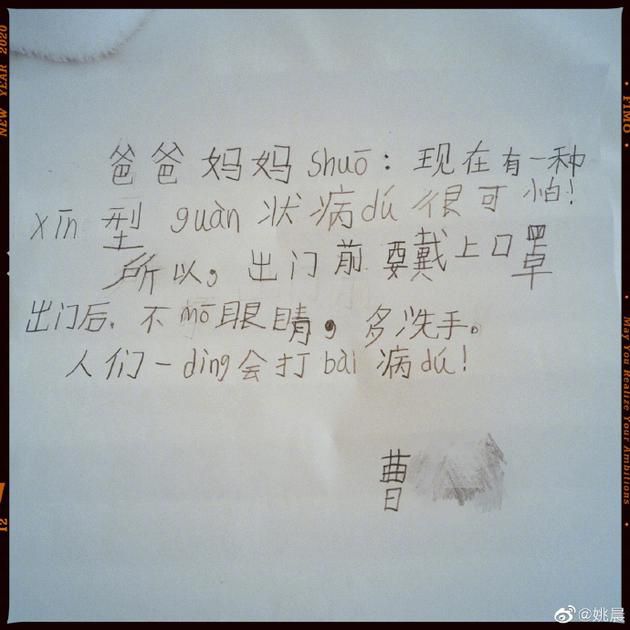 爸爸妈妈 shuō：现在有一种
xīn 型 guàn 状病dú 很可怕！
所以，出门前要戴上口罩
出门后，不 mō 眼睛，多洗手。
人们一dìng会打bài 病dú！
曹
NEW YEAR 2020
12
FIMO
May You Realize Your Ambitions
@姚晨